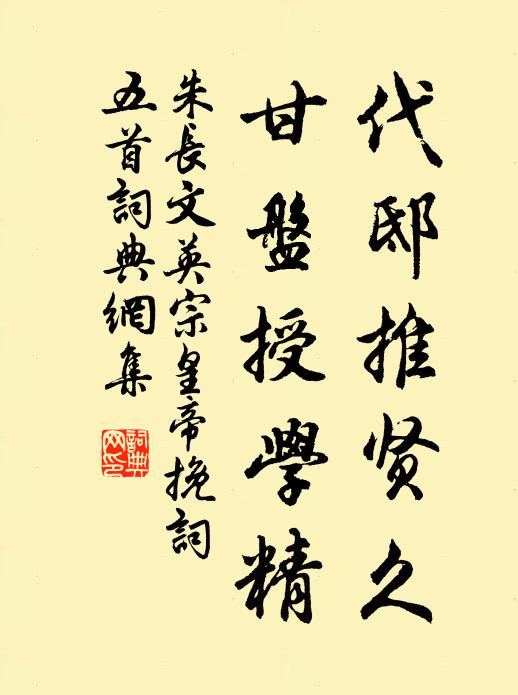 代邸推贤久
甘盤授學精
朱長文英宗皇帝挽詞
五首詞典網集
詞典网印